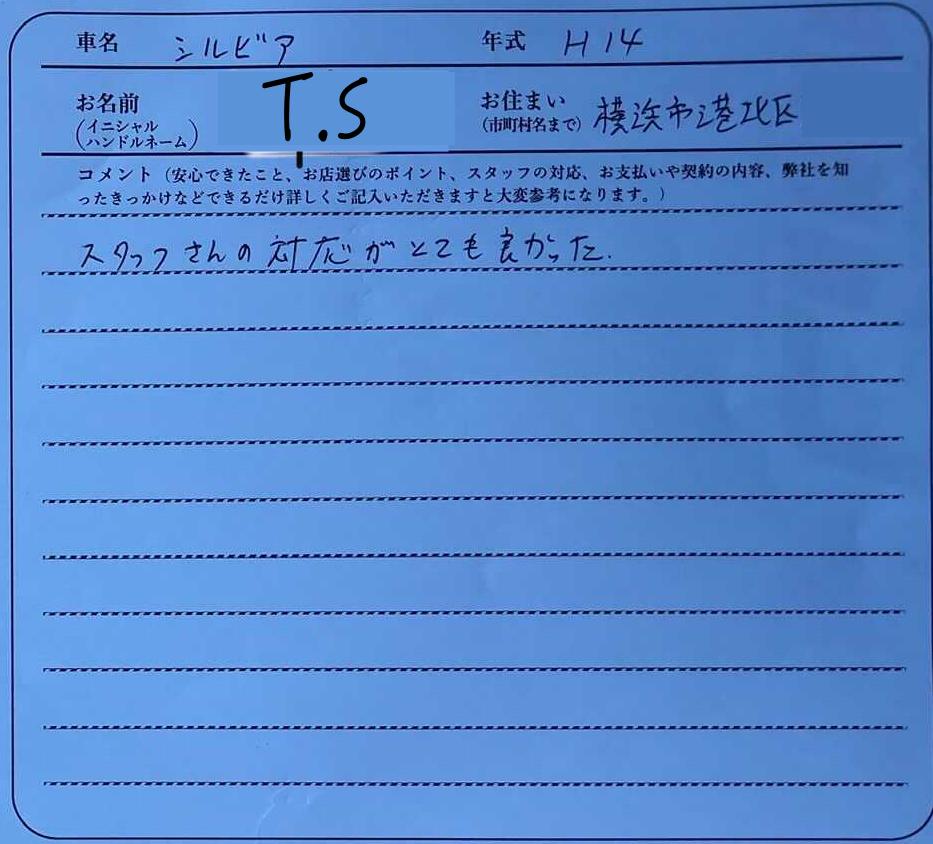 車名 シルビア 年式 H14
お名前 (イニシャル ハンドルネーム) T.S お住まい (市町村名まで) 横浜市港北区
コメント（安心できたこと、お店選びのポイント、スタッフの対応、お支払いや契約の内容、弊社を知
ったきっかけなどできるだけ詳しくご記入いただきますと大変参考になります。）
スタッフさんの対応がとても良かった.